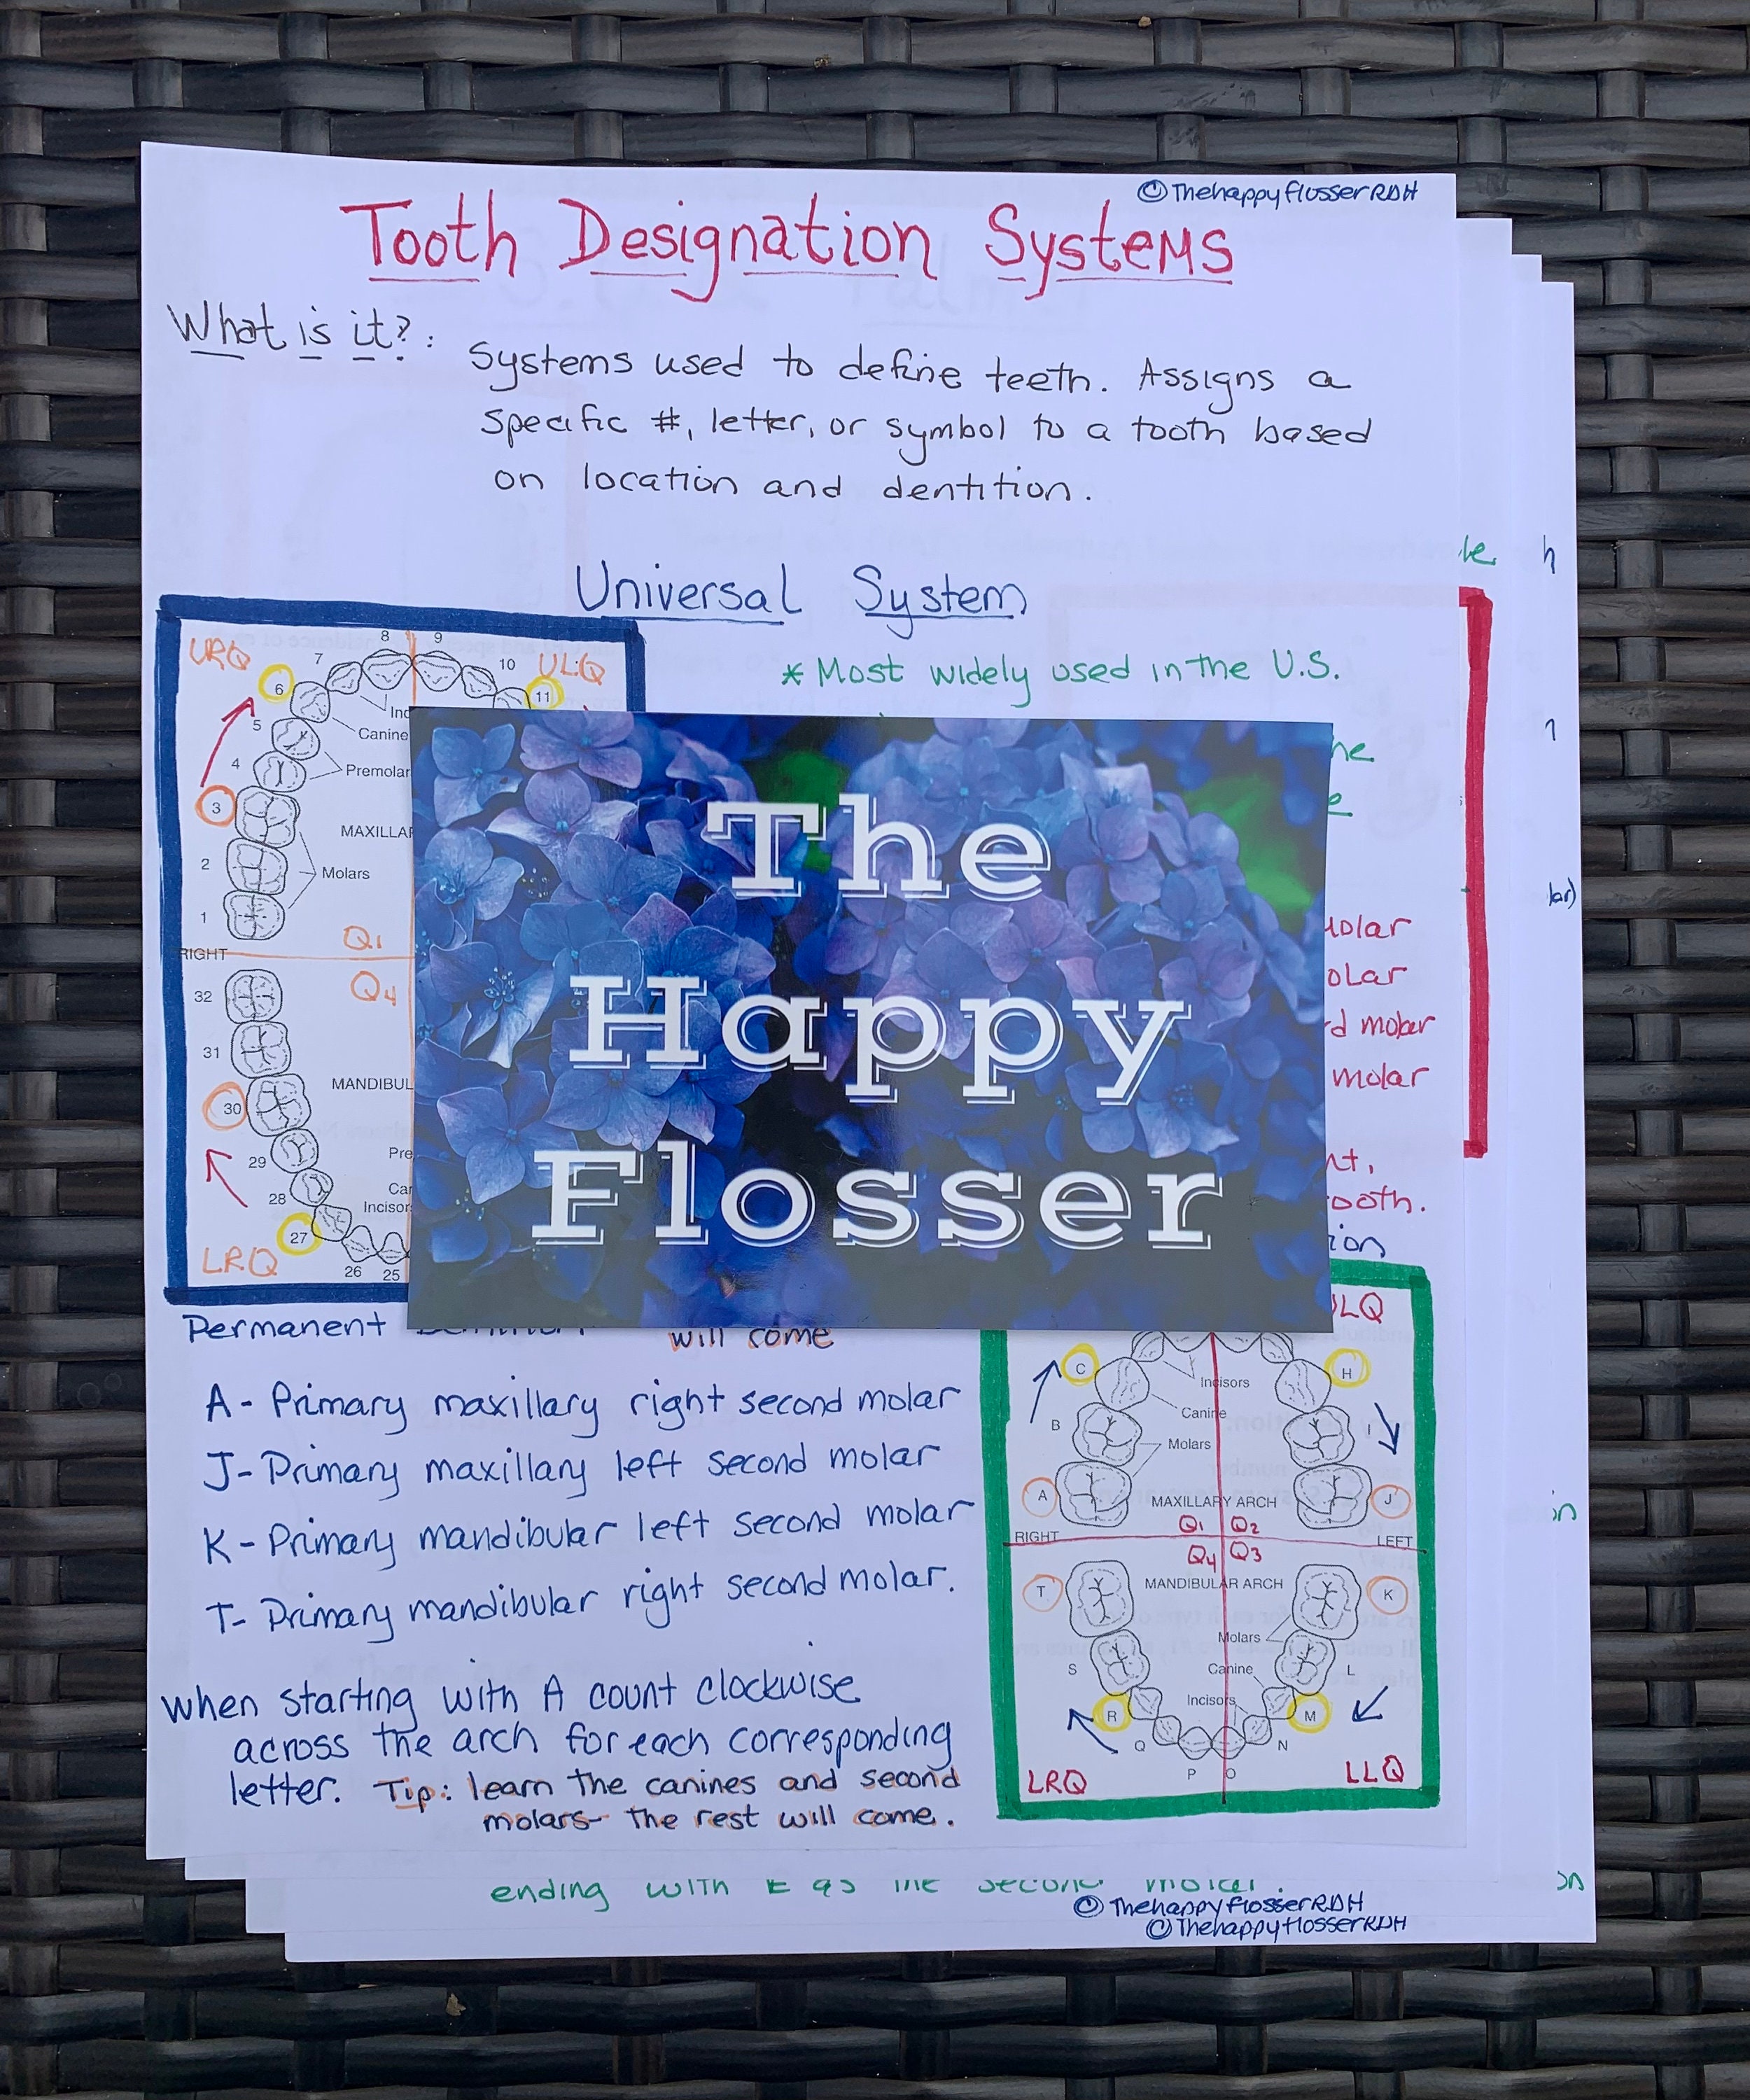 ©ThehappyflosserRDH
Tooth Designation Systems
What is it?:
Systems used to define teeth. Assigns a
specific #, letter, or symbol to a tooth based
on location and dentition.
Universal System
* Most widely used in the U.S.
URQ
ULQ
8
9
7
10
6
11
5
Canine
4
Premolar
3
2
Molars
1
Q1
RIGHT
32
Q4
31
30
29
28
27
LRQ
26
25
The
Happy
Flosser
molar
tooth.
Permanent
will come
A - Primary maxillary right second molar
J- Primary maxillary left second molar
K - Primary mandibular left second molar
T- Primary mandibular right second molar.
when starting with A count clockwise
across the arch for each corresponding
letter. Tip: learn the canines and second
molars- the rest will come.
C
H
Incisors
Canine
B
I
Molars
A
J
MAXILLARY ARCH
Q1
Q2
RIGHT
LEFT
Q4
Q3
T
MANDIBULAR ARCH
K
Molars
S
Canine
L
Incisors
R
M
Q
N
P
O
LRQ
LLQ
ending with E as the second molar.
©ThehappyflosserRDH
©ThehappyflosserRDH